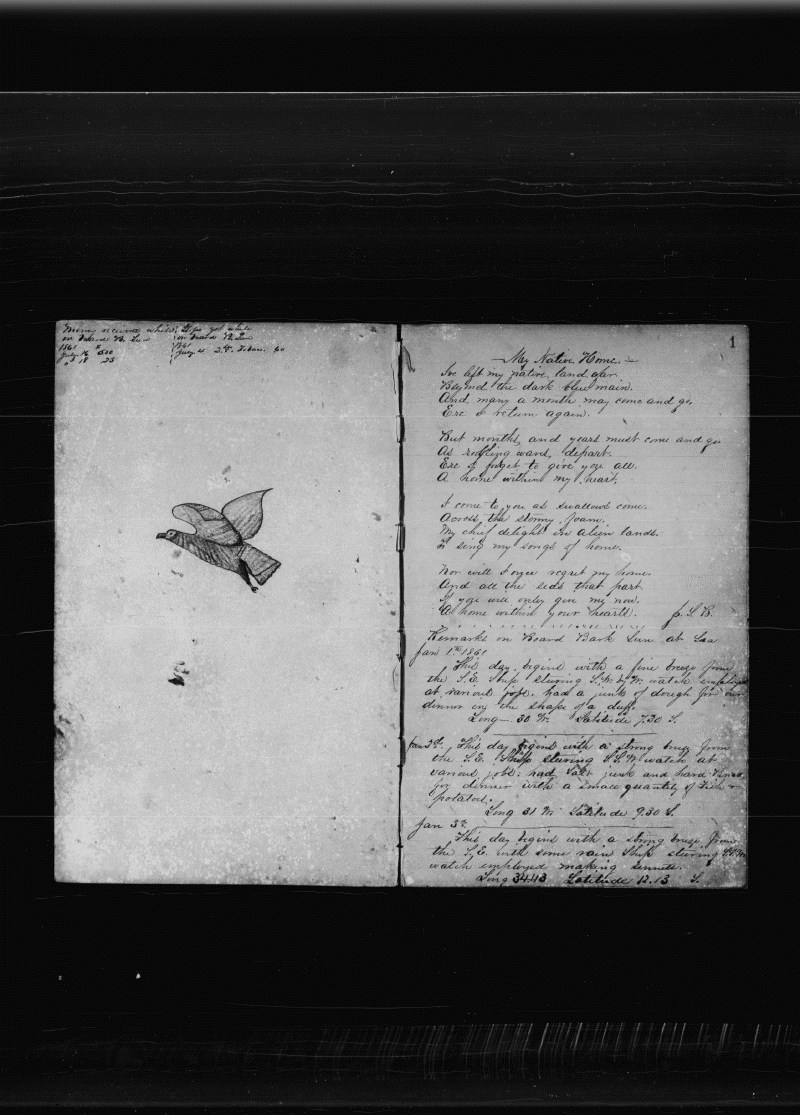 Money received whilst
on board B. Sun
1861 $
July 16 500
" 18 25
Slops got while
on board B. Sun
1861
July 4 2 lb. Tobacco 60
1
My Native Home.
I've left my native land afar.
Beyond the dark blue main.
And many a month may come and go,
Ere I return again.
But months, and years must come and go
As rolling waves, depart.
Ere I forget to give you all.
A home within my heart.
I come to you as swallows come.
Across, the stormy foam.
My chief delight in alien lands.
Is sing my songs of home.
Nor will I once regret my home.
And all the that part
If you will only give me now.
A home within your hearts. J. S. B.
Remarks on Board Bark Sun at Sea
Jan 1st 1861
This day, begins with a fine breeze from
the S.E. Ship steering S.W. by W. watch employed
at various jobs. had a junk of dough for our
dinner in the shape of a duff.
Long 30 W. Latitude 7.30 S.
Jan 2d. This day begins with a strong breeze from
the S.E. Ship steering S.S.W watch at
various jobs. had Salt junk and hard
for dinner with a small quantity of Fish &
potatoes.
Long 31 W. Latitude 9.30 S.
Jan 3d.
This day begins with a strong breeze from
the S.E. with some rain Ship steering
watch employed making sennit.
Long 34.43 Latitude 12.13 S.